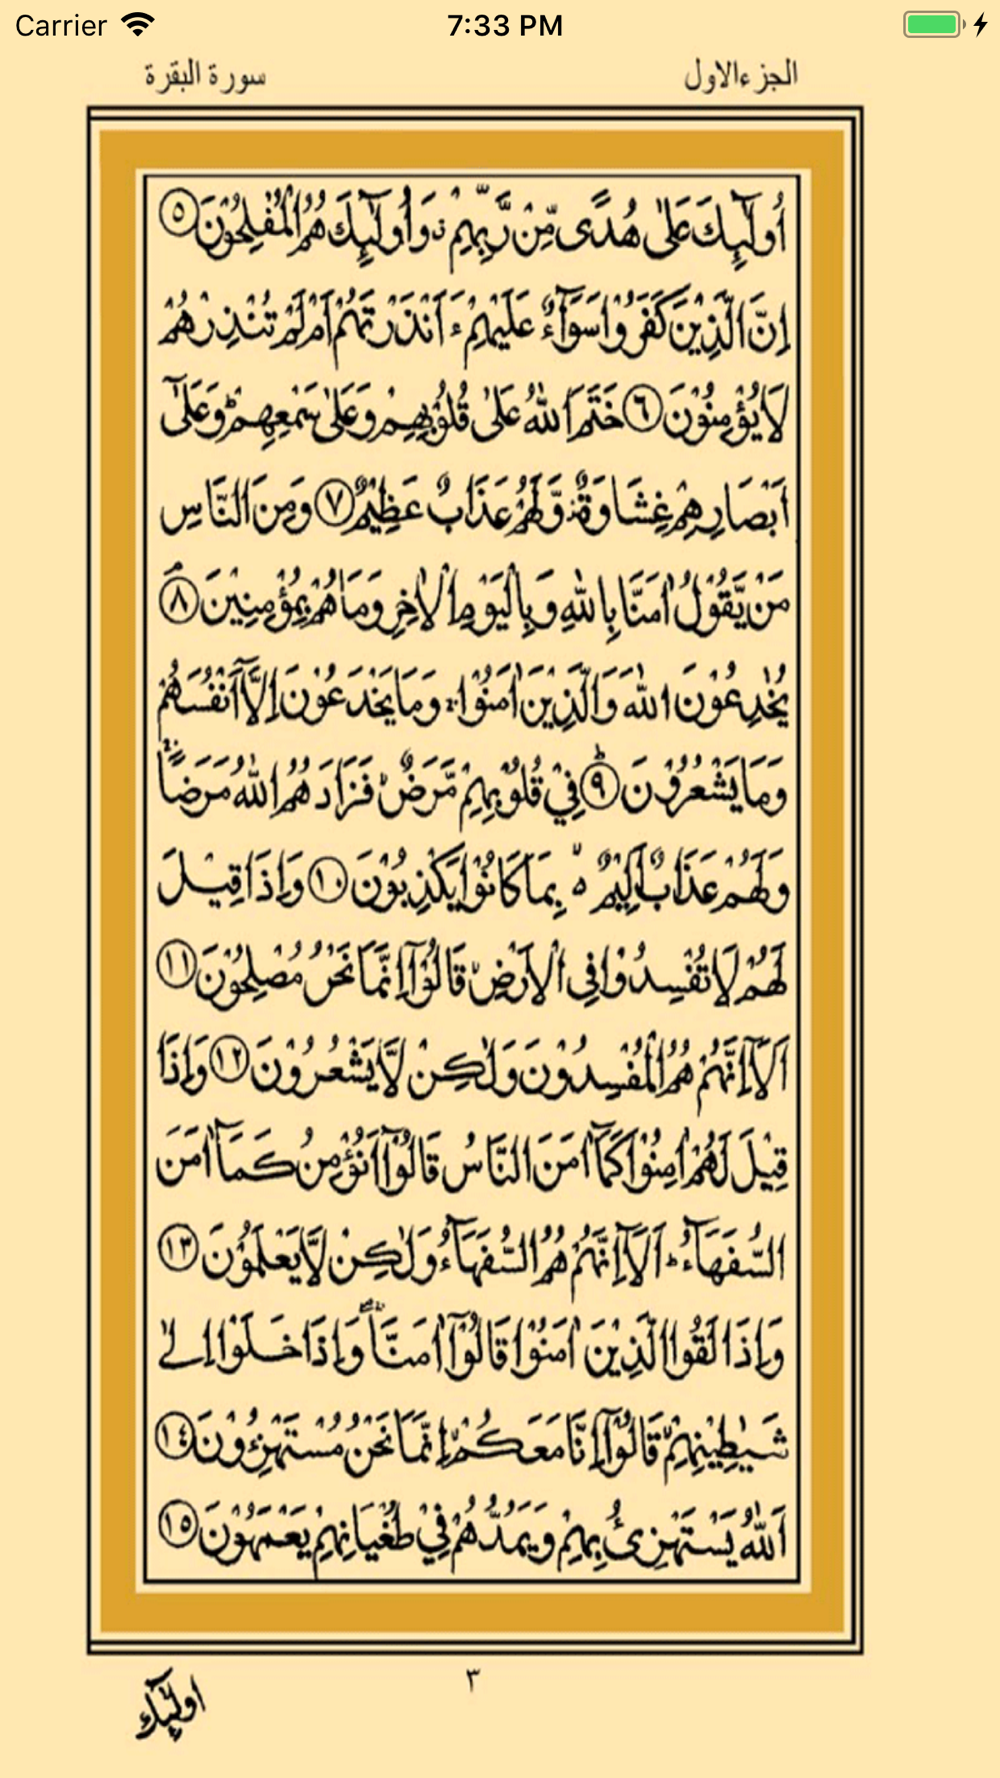 Carrier 7:33 PM
الجزءالاول سورة البقرة
اُولٰٓئِكَ عَلٰى هُدًى مِّنْ رَّبِّهِمْ ۙ وَاُولٰٓئِكَ هُمُ الْمُفْلِحُوْنَ ٥
اِنَّ الَّذِيْنَ كَفَرُوْا سَوَآءٌ عَلَيْهِمْ ءَاَنْذَرْتَهُمْ اَمْ لَمْ تُنْذِرْهُمْ
لَا يُؤْمِنُوْنَ ٦ خَتَمَ اللّٰهُ عَلٰى قُلُوْبِهِمْ وَعَلٰى سَمْعِهِمْ ؕ وَعَلٰٓى
اَبْصَارِهِمْ غِشَاوَةٌ ۙ وَّلَهُمْ عَذَابٌ عَظِيْمٌ ٧ وَمِنَ النَّاسِ
مَنْ يَّقُوْلُ اٰمَنَّا بِاللّٰهِ وَبِالْيَوْمِ الْاٰخِرِ وَمَا هُمْ بِمُؤْمِنِيْنَ ٨
يُخٰدِعُوْنَ اللّٰهَ وَالَّذِيْنَ اٰمَنُوْا ۚ وَمَا يَخْدَعُوْنَ اِلَّآ اَنْفُسَهُمْ
وَمَا يَشْعُرُوْنَ ؕ ٩ فِيْ قُلُوْبِهِمْ مَّرَضٌ ۙ فَزَادَهُمُ اللّٰهُ مَرَضًا ۚ
وَلَهُمْ عَذَابٌ اَلِيْمٌ ۢ ۙ بِمَا كَانُوْا يَكْذِبُوْنَ ١٠ وَاِذَا قِيْلَ
لَهُمْ لَا تُفْسِدُوْا فِى الْاَرْضِ ۙ قَالُوْٓا اِنَّمَا نَحْنُ مُصْلِحُوْنَ ١١
اَلَآ اِنَّهُمْ هُمُ الْمُفْسِدُوْنَ وَلٰكِنْ لَّا يَشْعُرُوْنَ ١٢ وَاِذَا
قِيْلَ لَهُمْ اٰمِنُوْا كَمَآ اٰمَنَ النَّاسُ قَالُوْٓا اَنُؤْمِنُ كَمَآ اٰمَنَ
السُّفَهَآءُ ؕ اَلَآ اِنَّهُمْ هُمُ السُّفَهَآءُ وَلٰكِنْ لَّا يَعْلَمُوْنَ ١٣
وَاِذَا لَقُوا الَّذِيْنَ اٰمَنُوْا قَالُوْٓا اٰمَنَّا ۖۚ وَاِذَا خَلَوْا اِلٰى
شَيٰطِيْنِهِمْ ۙ قَالُوْٓا اِنَّا مَعَكُمْ ۙ اِنَّمَا نَحْنُ مُسْتَهْزِءُوْنَ ١٤
اَللّٰهُ يَسْتَهْزِئُ بِهِمْ وَيَمُدُّهُمْ فِيْ طُغْيَانِهِمْ يَعْمَهُوْنَ ١٥
٣
اولٰٓئك